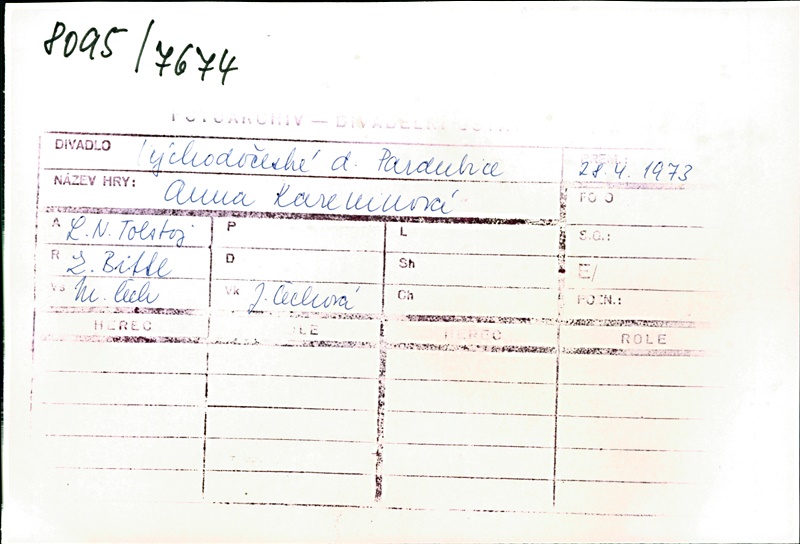 8095/7674
FOTOARCHIV — DIVADELNÍ
DIVADLO Východočeské d. Pardubice 28.4.1973
NÁZEV HRY: Anna Kareninová FOTO
A L.N. Tolstoj P L S.G.:
R Z. Bittl D Sh E/
Vs M. Čech Vk J. Čechová Ch POZN.:
HEREC ROLE HEREC ROLE